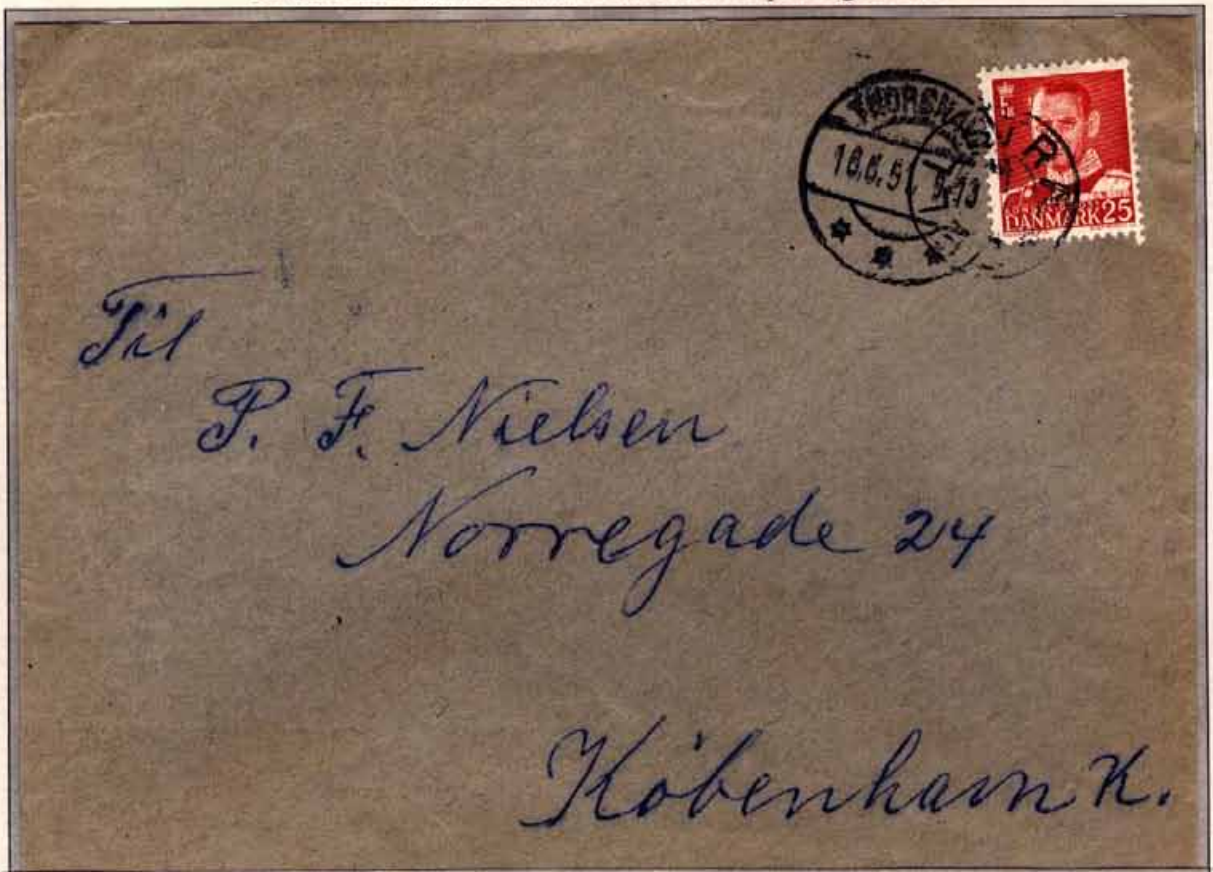 THORSHAVN
DANMARK 25
Til
P. F. Nielsen
Norregade 24
København K.